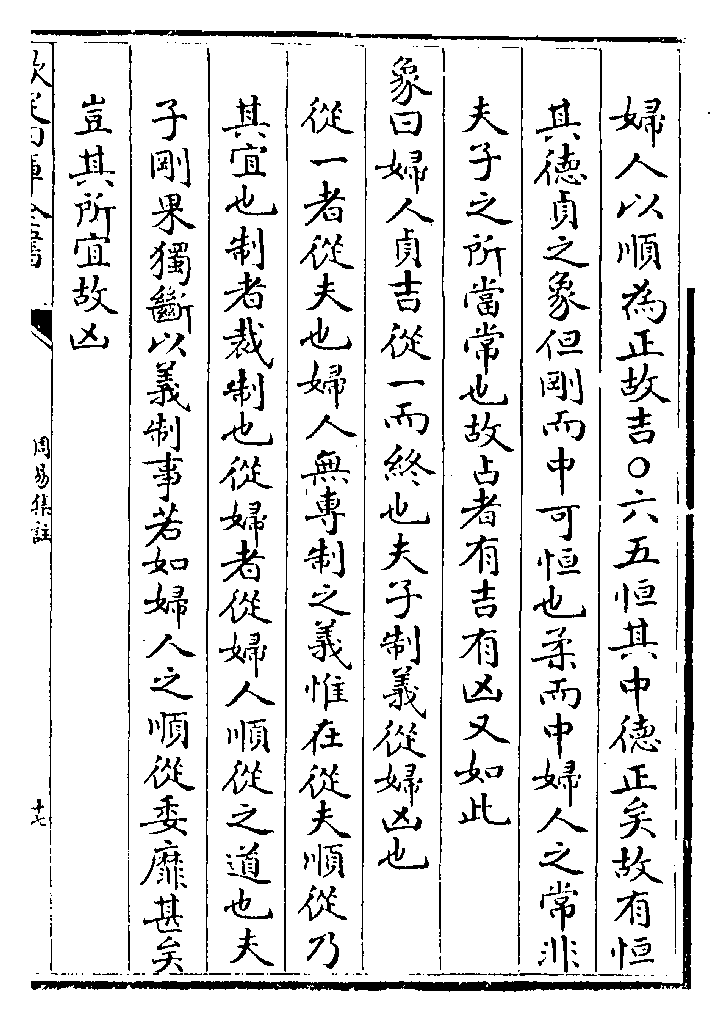 婦人以順為正故吉○六五恒其中德正矣故有恒
其德貞之象但剛而中可恒也柔而中婦人之常非
夫子之所當常也故占者有吉有凶又如此
象曰婦人貞吉從一而終也夫子制義從婦凶也
從一者從夫也婦人無專制之義惟在從夫順從乃
其宜也制者裁制也從婦者從婦人順從之道也夫
子剛果獨斷以義制事若如婦人之順從委靡甚矣
豈其所宜故凶
欽定四庫全書
周易集註
十七